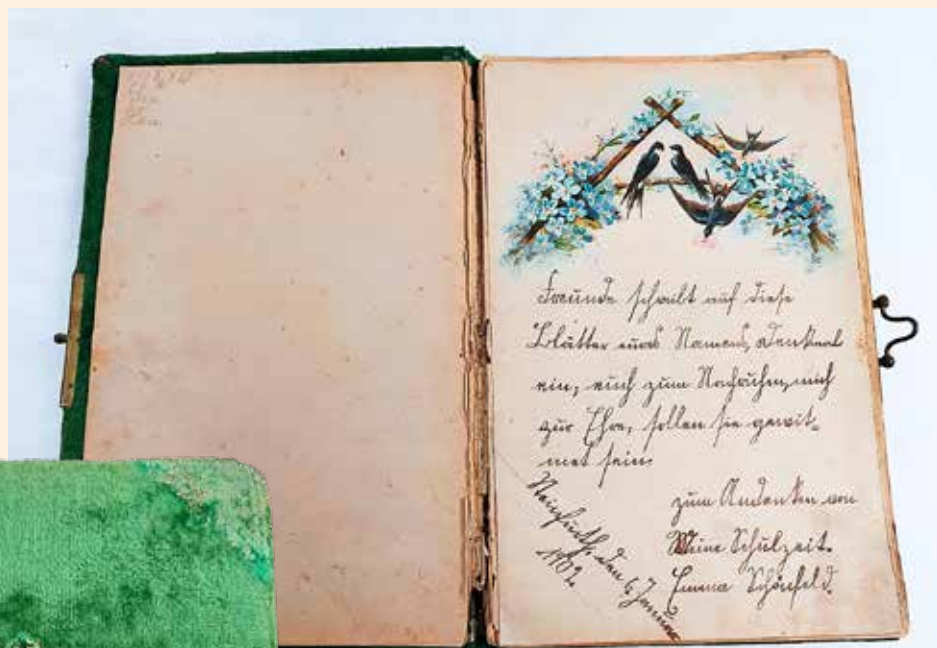 Freunde schreibt auf diese
Blätter eures Namens, Denkmal
ein, euch zum mich
zur Ehre, sollen sie gewit-
met sein.
zum Andenken von
Meine Schulzeit.
Emma Schönfeld.
den 6 Januar
1902.